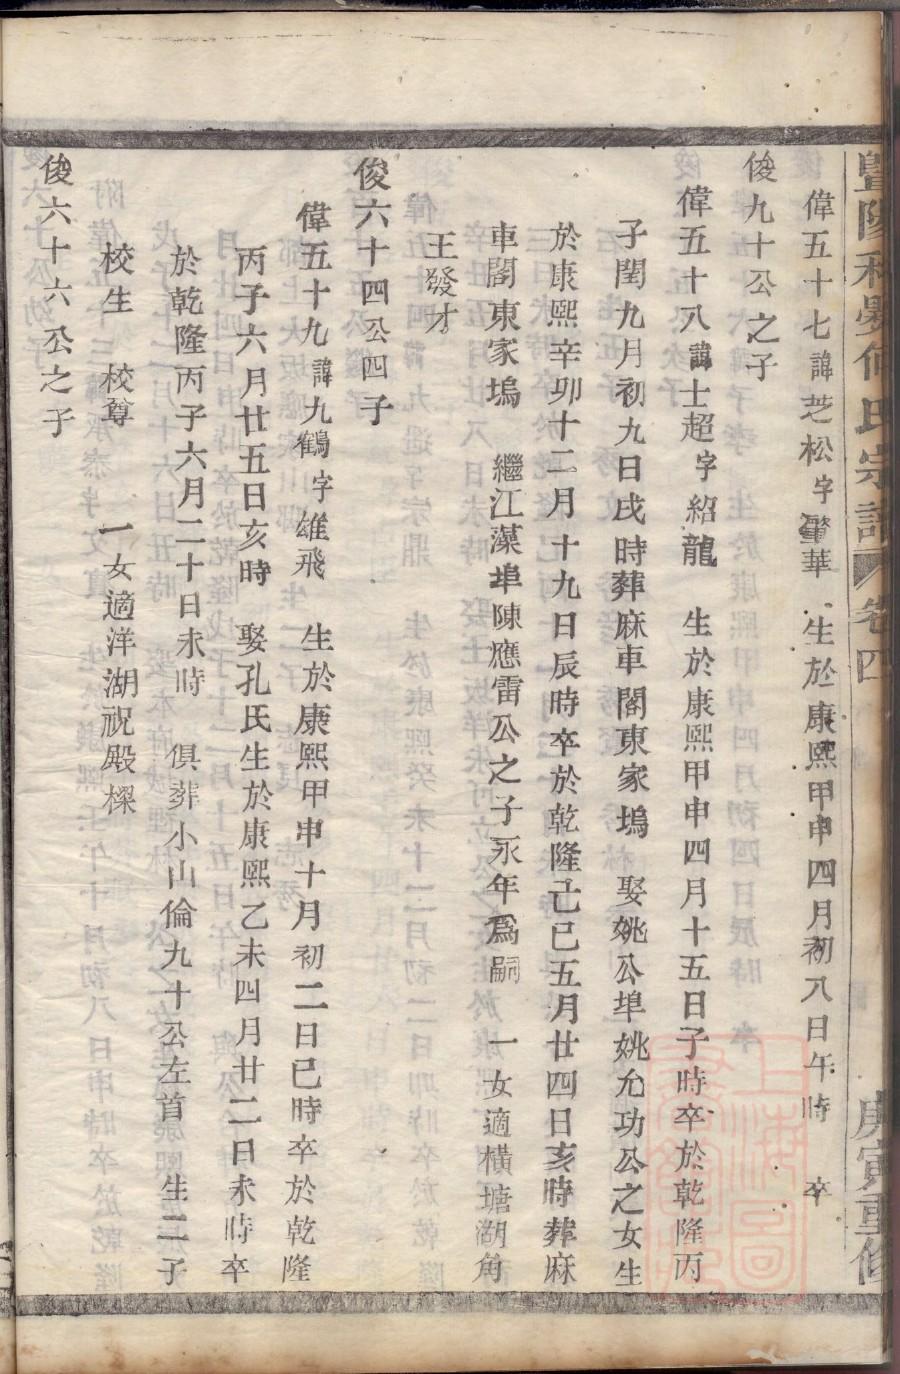 暨陽 何氏宗譜 卷四 庚寅重修
偉五十七諱芝松字 華 生於康熙甲申四月初八日午時 卒
俊九十公之子
偉五十八諱士超字紹龍 生於康熙甲申四月十五日子時卒於乾隆丙
子閏九月初九日戌時葬麻車閣東家塢 娶姚公埠姚允功公之女生
於康熙辛卯十二月十九日辰時卒於乾隆己巳五月廿四日亥時葬麻
車閣東家塢 繼江藻埠陳應雷公之子永年爲嗣 一女適橫塘湖角
王發才
俊六十四公四子
偉五十九諱九鶴字雄飛 生於康熙甲申十月初二日巳時卒於乾隆
丙子六月廿五日亥時 娶孔氏生於康熙乙未四月廿二日未時卒
於乾隆丙子六月二十日未時 俱葬小山倫九十公左首 生二子
校生 校尊 一女適洋湖祝殿樑
俊六十六公之子